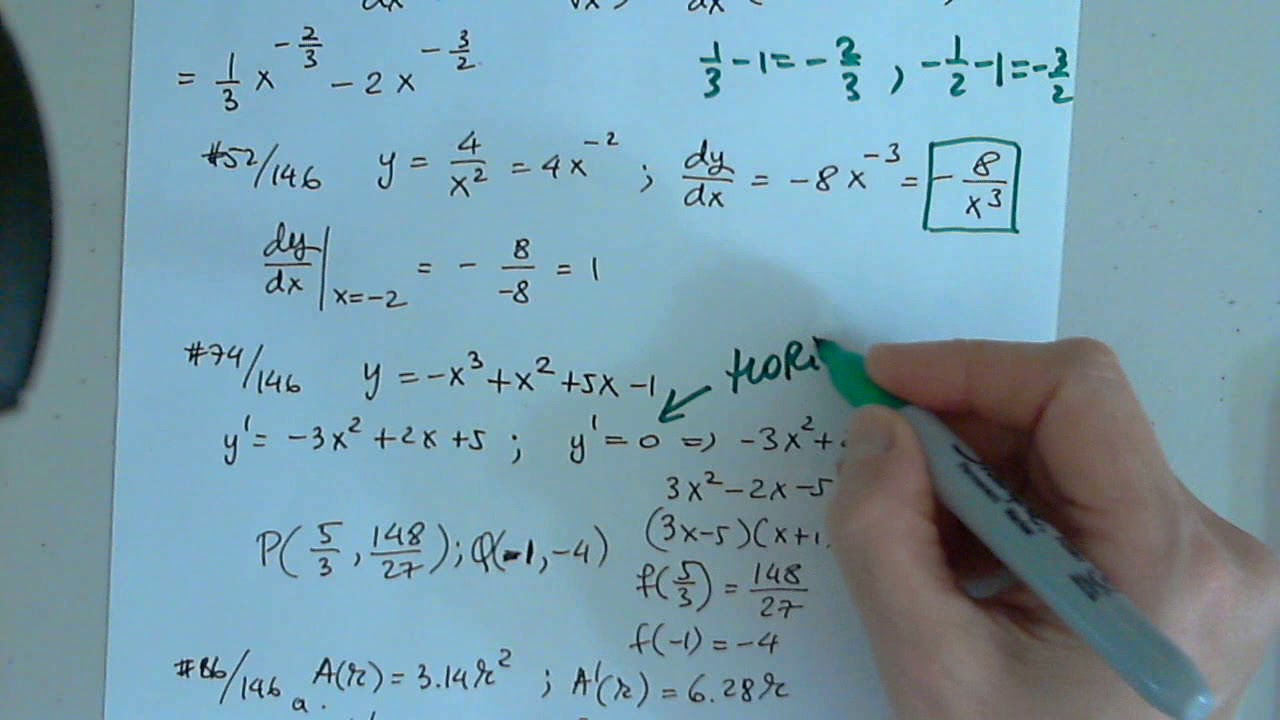 = 1/3 x^(-2/3) - 2x^(-3/2)
1/3 - 1 = -2/3 , -1/2 - 1 = -3/2
#52/146 y = 4/x² = 4x^(-2) ; dy/dx = -8x^(-3) = -8/x³
dy/dx | x=-2 = - 8/-8 = 1
HORI
#74/146 y = -x³+x²+5x-1
y' = -3x²+2x+5 ; y' = 0 ⇒ -3x²+
3x²-2x-5
(3x-5)(x+1
P(5/3, 148/27); Q(-1,-4)
f(5/3) = 148/27
f(-1) = -4
#86/146 a. A(r) = 3.14r² ; A'(r) = 6.28r